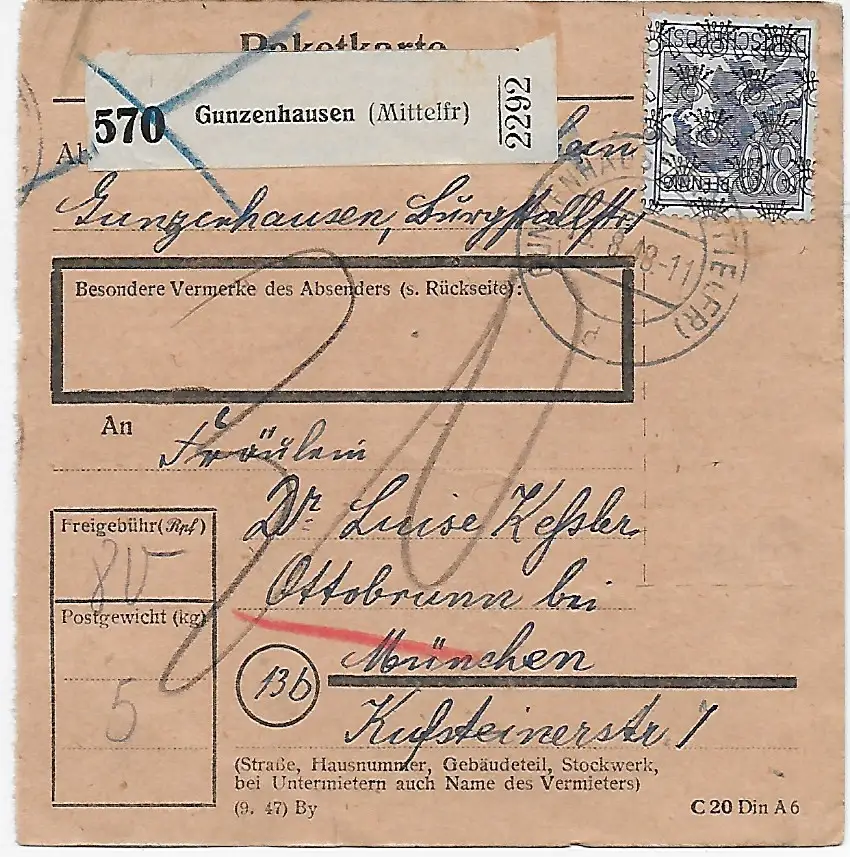 Paketkarte
570 Gunzenhausen (Mittelfr) 2292
Ab
Gunzenhausen, Burgstallstr.
DEUTSCHE POST
80 PFENNIG
GUNZENHAUSEN (MITTELFR)
8.48.-11
d
Besondere Vermerke des Absenders (s. Rückseite):
An
Fräulein
Dr Luise Keßler
Ottobrunn bei
München
13b
Kufsteinerstr. 7
Freigebühr (Rpf)
80
Postgewicht (kg)
5
(Straße, Hausnummer, Gebäudeteil, Stockwerk,
bei Untermietern auch Name des Vermieters)
(9. 47) By
C 20 Din A 6